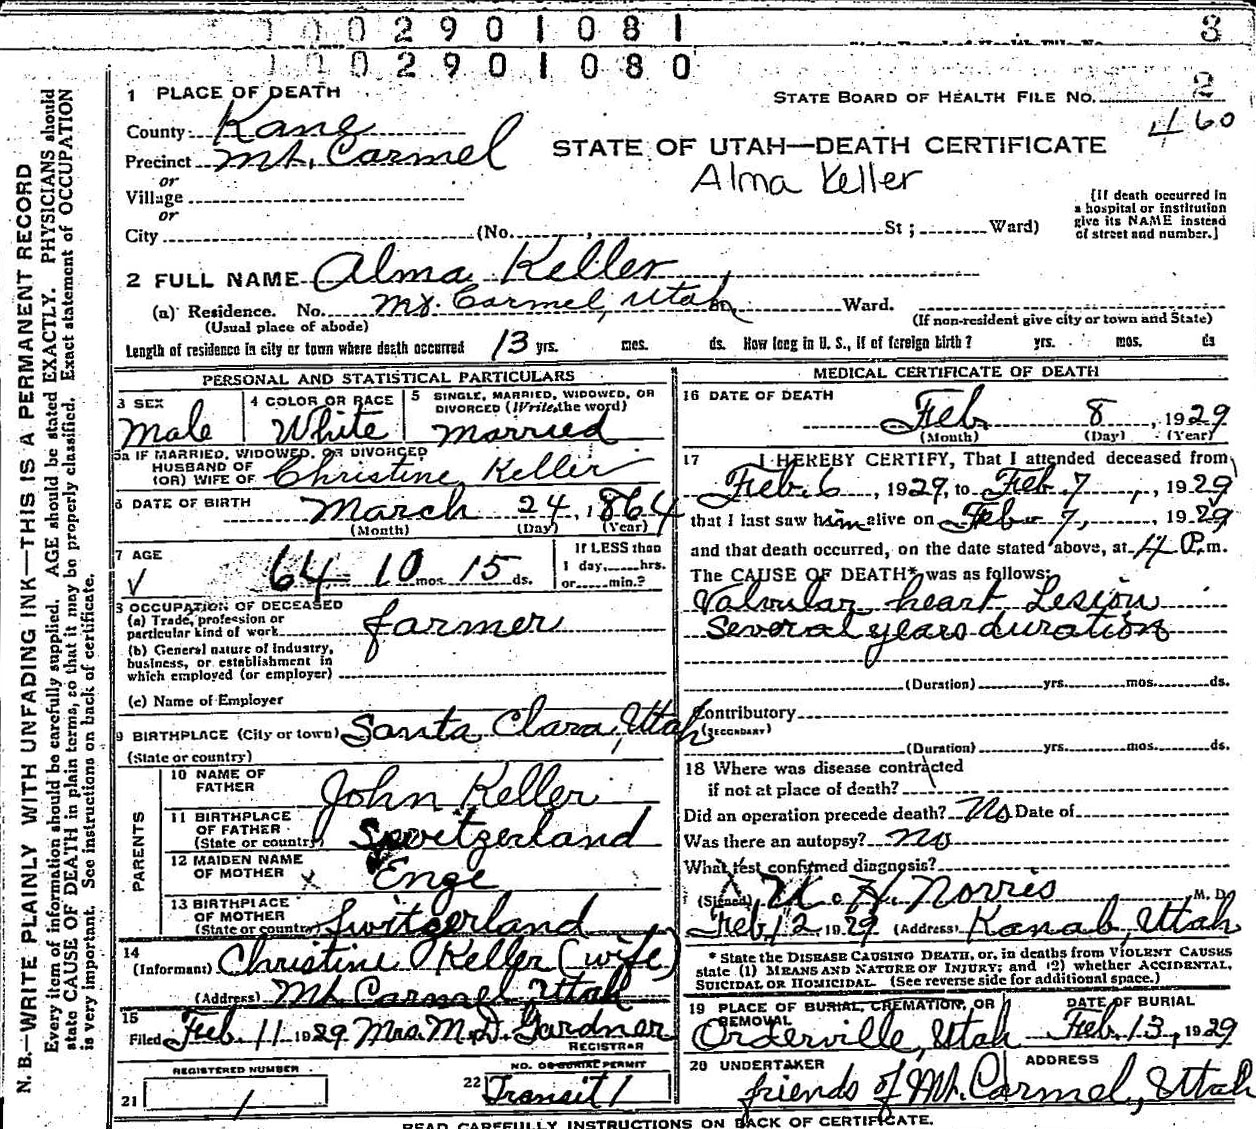 0 0 0 2 9 0 1 0 8 1
3
0 0 0 2 9 0 1 0 8 0
2
1 PLACE OF DEATH
STATE BOARD OF HEALTH FILE NO.
460
County Kane
Precinct Mt. Carmel
STATE OF UTAH—DEATH CERTIFICATE
or
Alma Keller
Village
or
City (No. , St ; Ward)
[If death occurred in
a hospital or institution
give its NAME instead
of street and number.]
2 FULL NAME Alma Keller
(a) Residence. No. Mt. Carmel, Utah Ward.
(Usual place of abode) (If non-resident give city or town and State)
Length of residence in city or town where death occurred 13 yrs. mos. ds. How long in U. S., if of foreign birth? yrs. mos. ds
PERSONAL AND STATISTICAL PARTICULARS
3 SEX
Male
4 COLOR OR RACE
White
5 SINGLE, MARRIED, WIDOWED, OR
DIVORCED (Write the word)
Married
5a IF MARRIED, WIDOWED, OR DIVORCED
HUSBAND OF
(OR) WIFE OF Christine Keller
6 DATE OF BIRTH March 24, 1864
(Month) (Day) (Year)
7 AGE
64 10 mos 15 ds.
If LESS than
1 day, hrs.
or min.?
8 OCCUPATION OF DECEASED
(a) Trade, profession or
particular kind of work farmer
(b) General nature of Industry,
business, or establishment in
which employed (or employer)
(c) Name of Employer
9 BIRTHPLACE (City or town) Santa Clara, Utah
(State or country)
PARENTS
10 NAME OF
FATHER John Keller
11 BIRTHPLACE
OF FATHER
(State or country) Switzerland
12 MAIDEN NAME
OF MOTHER x Enge
13 BIRTHPLACE
OF MOTHER
(State or country) Switzerland
14
(Informant) Christine Keller (wife)
(Address) Mt. Carmel, Utah
15
Filed Feb. 11 1929 Mrs. M. D. Gardner
REGISTRAR
REGISTERED NUMBER
21 1
NO. OF BURIAL PERMIT
22 Transit 1
MEDICAL CERTIFICATE OF DEATH
16 DATE OF DEATH
Feb. 8, 1929
(Month) (Day) (Year)
17 I HEREBY CERTIFY, That I attended deceased from
Feb. 6, 1929, to Feb. 7, 1929
that I last saw him alive on Feb. 7, 1929
and that death occurred, on the date stated above, at 4 P. m.
The CAUSE OF DEATH* was as follows:
Valvular heart Lesion
several years duration
(Duration) yrs. mos. ds.
Contributory
(SECONDARY)
(Duration) yrs. mos. ds.
18 Where was disease contracted
if not at place of death?
Did an operation precede death? No Date of
Was there an autopsy? No
What test confirmed diagnosis?
(Signed) H. Norris M. D.
Feb. 12, 1929 (Address) Kanab, Utah
* State the DISEASE CAUSING DEATH, or, in deaths from VIOLENT CAUSES
state (1) MEANS AND NATURE OF INJURY; and (2) whether ACCIDENTAL,
SUICIDAL OR HOMICIDAL. (See reverse side for additional space.)
19 PLACE OF BURIAL, CREMATION, OR
REMOVAL
Orderville, Utah
DATE OF BURIAL
Feb. 13, 1929
20 UNDERTAKER ADDRESS
friends of Mt. Carmel, Utah
READ CAREFULLY INSTRUCTIONS ON BACK OF CERTIFICATE.
N. B.—WRITE PLAINLY WITH UNFADING INK—THIS IS A PERMANENT RECORD
Every item of information should be carefully supplied. AGE should be stated EXACTLY. PHYSICIANS should
state CAUSE OF DEATH in plain terms, so that it may be properly classified. Exact statement of OCCUPATION
is very important. See instructions on back of certificate.